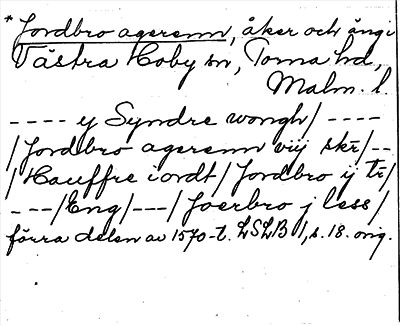 * Jordbro agerenn, åker och äng i
Västra Hoby sn, Torna hd,
Malm. l.
---- y Syndre wongh/ ----
/Jordbro agerenn viij skr/--
/Hauffre iordt/Jordbro ij tr/
---/Eng/---/Joerbro j less/
förra delen av 1570-t. LSLB 1, s. 18. orig.